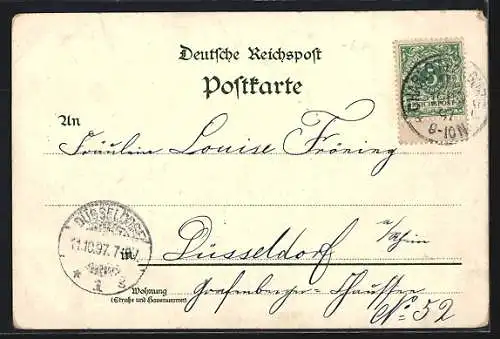 Deutsche Reichspost
Postkarte
An
Fräulein Louise Fröning
DÜSSELDORF
11.10.97. 7-
in Düsseldorf a/Rhein
Wohnung
(Straße und Hausnummer)
Grafenberger-Chaussee
No. 52
5
REICHSPOST
97
8-10N